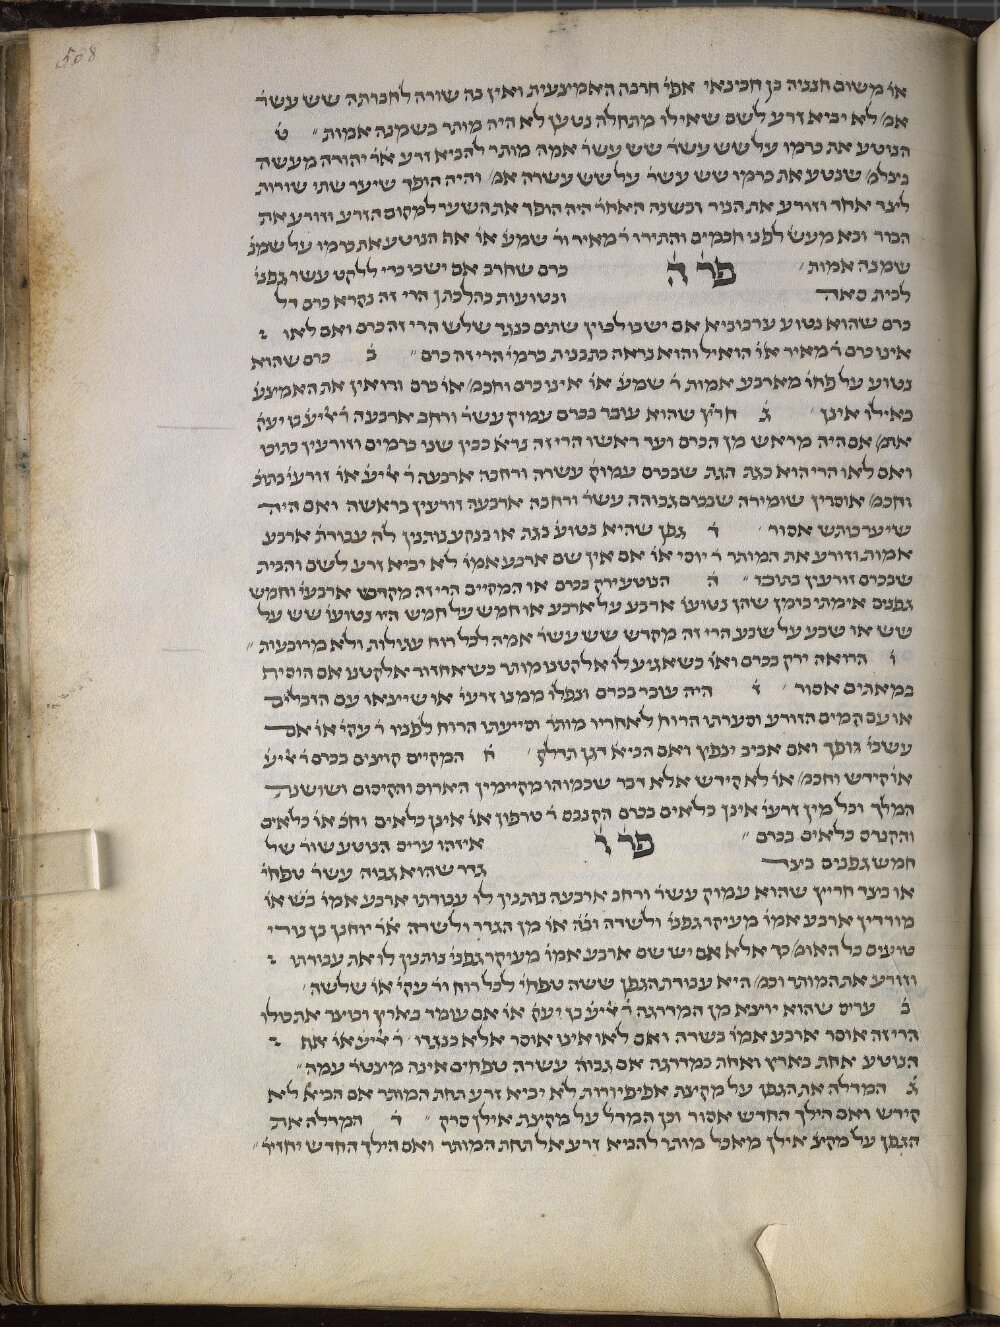 508
או משום חנניה בן חכינאי אפי חרבה האמיצעית ואין בה שורה לחברתה שש עשר
אמ לא יביא זרע לשם שאילו מתחלה נטען לא היה מותר בשמנה אמות ט
הנוטע את כרמו על שש עשר שש עשר אמה מותר להביא זרע א׳ר יהודה מעשה
בצלמ שנטע את כרמו שש עשר על שש עשרה אמ והיה הופך שיער שתי שורות
לצד אחד וזורע את הניר ובשנה האחר היה הופך את השער למקום הזרע וזורע את
הבור ובא מעש לפני חכמים והתירו ר מאיר ור שמע או אח הנוטע את כרמו על שמנ
שמנה אמות פר ה כרם שחרב אם יש בו כדי ללקט עשר גפני
לבית סאה ונטועות כהלכתן הרי זה נקרא כרם דל
כרם שהוא נטוע ערבוביא אם יש בו לכוין שתים כנגד שלש הרי זה כרם ואם לאו
אינו כרם ר מאיר או הואיל והוא נראה כתבנית כרמי הרי זה כרם ב כרם שהוא
נטוע על פחו מארבע אמות ר שמע או אינו כרם וחכמ או כרם ורואין את האמיצע
כאילו אינן ג חריץ שהוא עובר בכרם עמוק עשר ורחב ארבעה ר אליע בן יעק
אומ אם היה מראש הכרם ועד ראשו הרי זה נרא כבין שני כרמים וזורעין בתוכו
ואם לאו הרי הוא כגת הגת שבכרם עמוק עשרה ורחבה ארבעה ר אליע או זורעי בתוכ
וחכמ אוסרין שומירה שבכרם גבוהה עשר ורחבה ארבעה זורעין בראשה ואם היה
שיער כותש אסור ד גפן שהיא נטוע בגת או בנקע נותנין לה עבודת ארבע
אמות וזורע את המותר ר יוסי או אם אין שם ארבע אמו לא יביא זרע לשם והבית
שבכרם זורעין בתוכו ה הנוטע ירק בכרם או המקיים הרי זה מקדש ארבעי וחמש
גפנים אימתי בזמן שהן נטועו ארבע על ארבע או חמש על חמש היו נטועו שש על
שש או שבע על שבע הרי זה מקדש שש עשר אמה לכל רוח עגולות ולא מרובעות
ו הרואה ירק בכרם ואו כשאגיע לו אלקטנו מותר כשאחזור אלקטנו אם הוסיף
במאתים אסור ז היה עובר בכרם ונפלו ממנו זרעי או שיצאו עם הזבלים
או עם המים הזורע וסערתו הרוח לאחריו מותר וסייעתו הרוח לפניו ר עקי או אם
עשבי יופך ואם אביב ינפץ ואם הביא דגן תדלק ח המקיים קוצים בכרם ר אליע
או קידש וחכמ או לא קידש אלא דבר שכמוהו מקיימין האירוס והקיסום ושושנת
המלך וכל מין זרעי אינן כלאים בכרם הקנבס ר טרפון או אינן כלאים וחכ או כלאים
והקנרס כלאים בכרם פר ו איזהו עריס הנוטע שור של
חמש גפנים בצד גדר שהוא גבוה עשר טפחי
או בצד חריץ שהוא עמוק עשר ורחב ארבעה נותנין לו עבודתו ארבע אמו בש או
מודדין ארבע אמו מעיקר גפני ולשדה ובה או מן הגדר ולשדה א׳ר יוחנן בן נורי
טועים כל האומ כך אלא אם יש שם ארבע אמו מעיקר גפני נותנין לו את עבודתו
וזורע את המותר וכמ היא עבודת הגפן ששה טפחי לכל רוח ור עקי או שלשה
ב עריס שהוא יוצא מן המדרגה ר אליע בן יעק או אם עומד בארץ ובוצר את כולו
הרי זה אוסר ארבע אמו בשדה ואם לאו אינו אוסר אלא כנגדו ר אליע או אח
הנוטע אחת בארץ ואחת במדרגה אם גבוה עשרה טפחים אינה מצטר עמה
ג המדלה את הגפן על מקצת אפיפיורות לא יביא זרע תחת המותר אם הביא לא
קידש ואם הילך החדש אסור וכן המדל על מקצת אילן סרק ד המדלה את
הגפן על מקצ אילן מאכל מותר להביא זרע אל תחת המותר ואם הילך החדש יחזיר